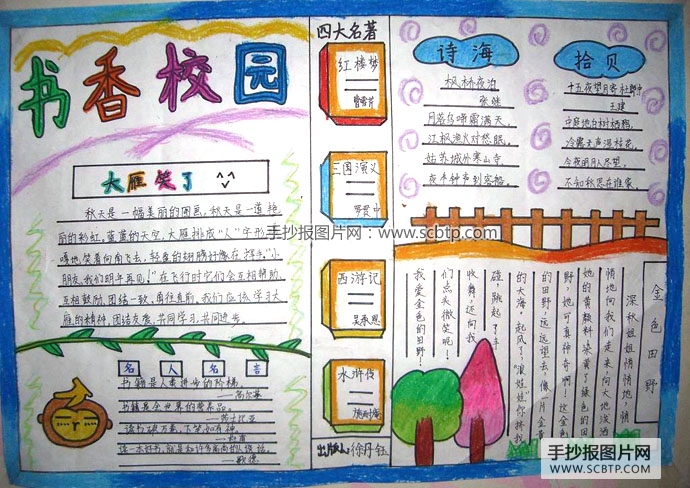 书香校园
大雁笑了
秋天是一幅美丽的图画,秋天是一道艳
丽的彩虹,蓝蓝的天空,大雁排成"人"字形,
地笑着向南飞去,轻盈的翅膀好像在挥手"小
朋友,我们明年再见!"在飞行时它们会互相帮助,
互相鼓励,团结一致,勇往直前,我们应该学习大
雁的精神,团结友爱,共同学习,共同进步。
名人名言
书籍是人类进步的阶梯。
——高尔基
书籍是全世界的营养品。
——莎士比亚
读书破万卷,下笔如有神。
——杜甫
读一本好书,就是和许多高尚的人谈话。
——歌德
四大名著
红楼梦
曹雪芹
三国演义
罗贯中
西游记
吴承恩
水浒传
施耐庵
出版人:徐丹钰
诗海
枫桥夜泊
张继
月落乌啼霜满天,
江枫渔火对愁眠。
姑苏城外寒山寺,
夜半钟声到客船。
拾贝
十五夜望月寄杜郎中
王建
中庭地白树栖鸦,
冷露无声湿桂花。
今夜月明人尽望,
不知秋思在谁家。
金色田野
深秋姐姐悄悄地,悄
悄地向我们走来,向大地泼洒
她的黄颜料染黄了绿色的田
野,她可真神奇啊!这金色
的田野,远远望去,像一片金黄
的大海,起风了,"浪娃娃"你挤我
碰,跳起了手
收舞,还向我
们点头微笑呢!
我爱金色的田野!
手抄报图片网:www.scbtp.com
手抄报图片网
WWW.SCBTP.COM